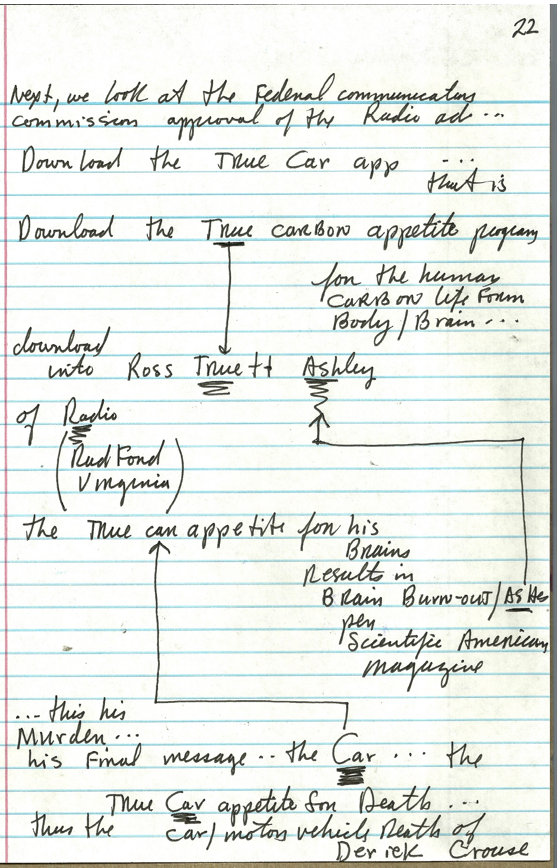 22
Next, we look at the Federal communications
commission approval of the Radio ad...
Download the True Car app ...
that is
Download the True carBon appetite program
for the human
CARBON life Form
Body/Brain...
download
into Ross Truett Ashley
of Radio
(RadFord
Virginia)
the True car appetite for his
Brains
Results in
BRain Burn-out/Ashes
per
Scientific American
magazine
...this his
Murder...
his Final message .. the Car ... the
True Car appetite for Death ...
thus the car/motor vehicle Death of
Derick Crouse